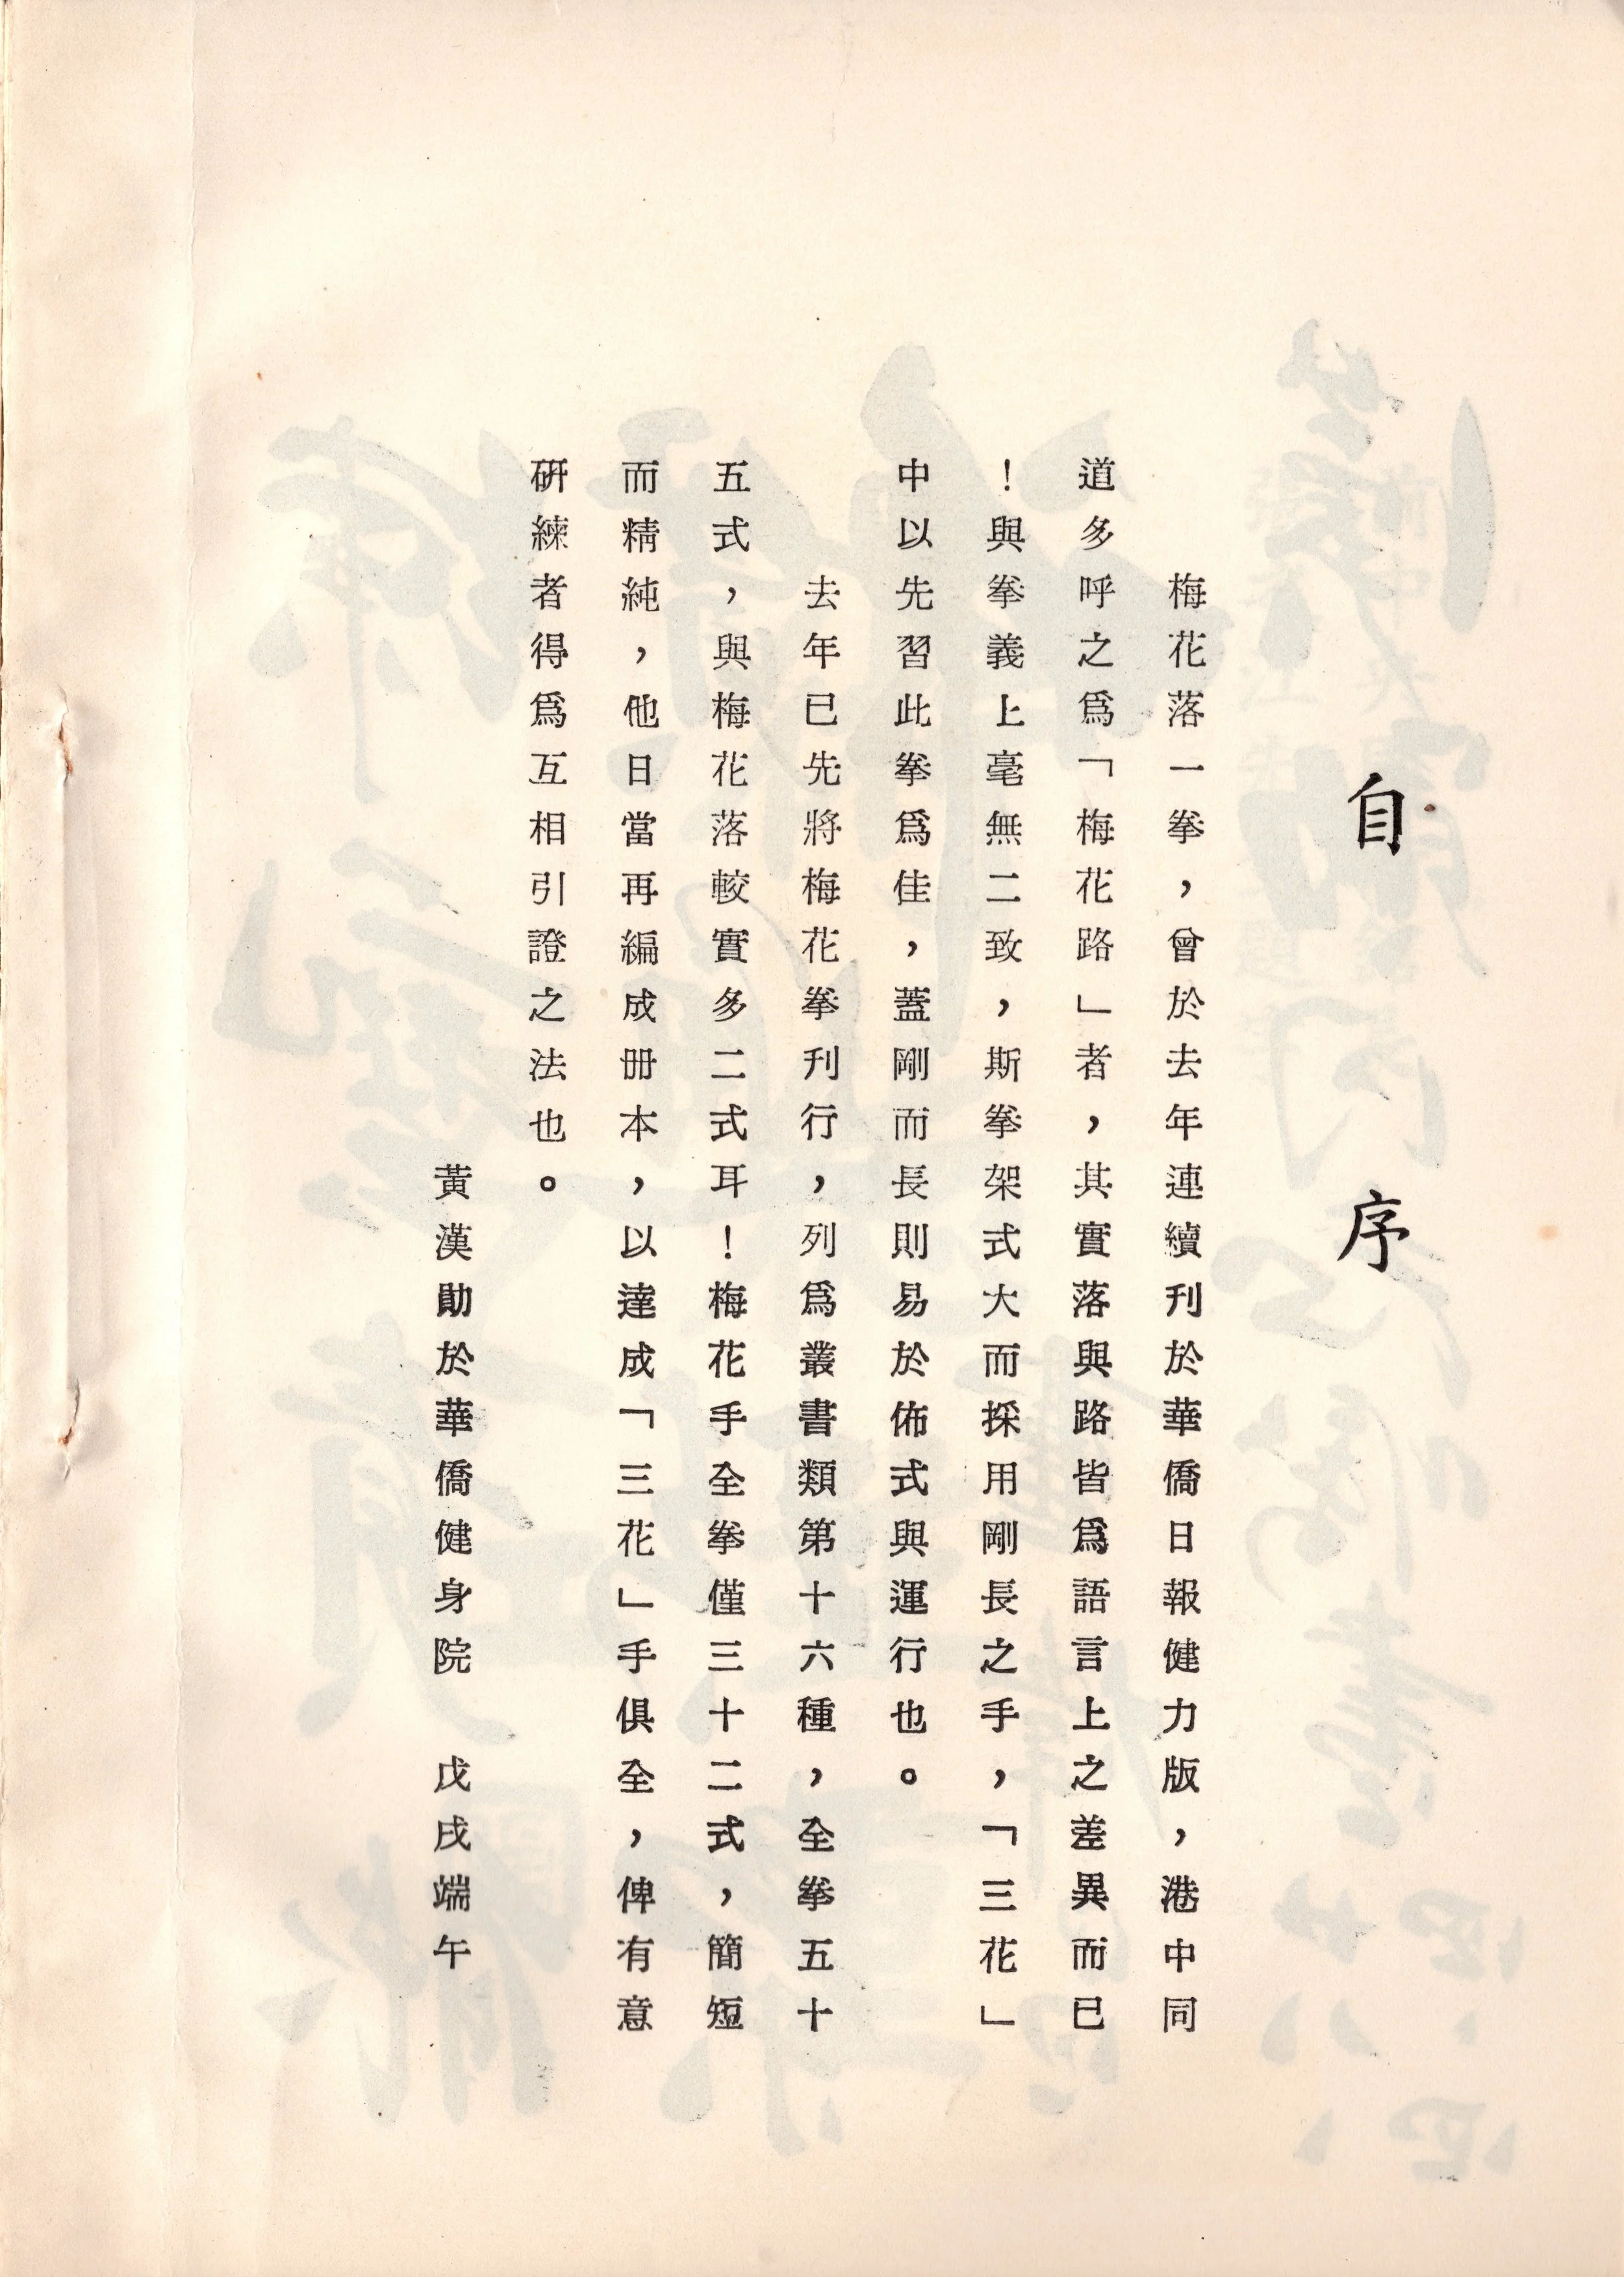 自序
梅花落一拳，曾於去年連續刊於華僑日報健力版，港中同
道多呼之爲「梅花路」者，其實落與路皆爲語言上之差異而已
！與拳義上毫無二致，斯拳架式大而採用剛長之手，「三花」
中以先習此拳爲佳，蓋剛而長則易於佈式與運行也。
去年已先將梅花拳刊行，列爲叢書類第十六種，全拳五十
五式，與梅花落較實多二式耳！梅花手全拳僅三十二式，簡短
而精純，他日當再編成冊本，以達成「三花」手俱全，俾有意
研練者得爲互相引證之法也。
黃漢勛於華僑健身院　戊戌端午